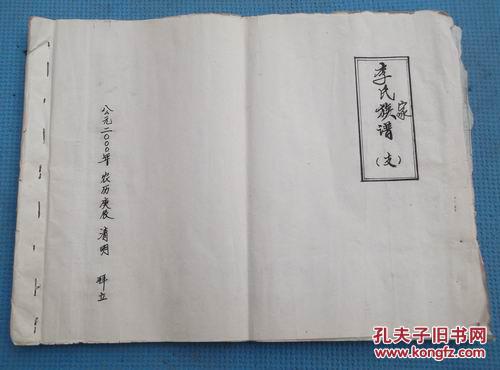 李氏家族谱
（支）
公元二〇〇〇年 农历庚辰 清明 拜立
孔夫子旧书网
www.kongfz.com